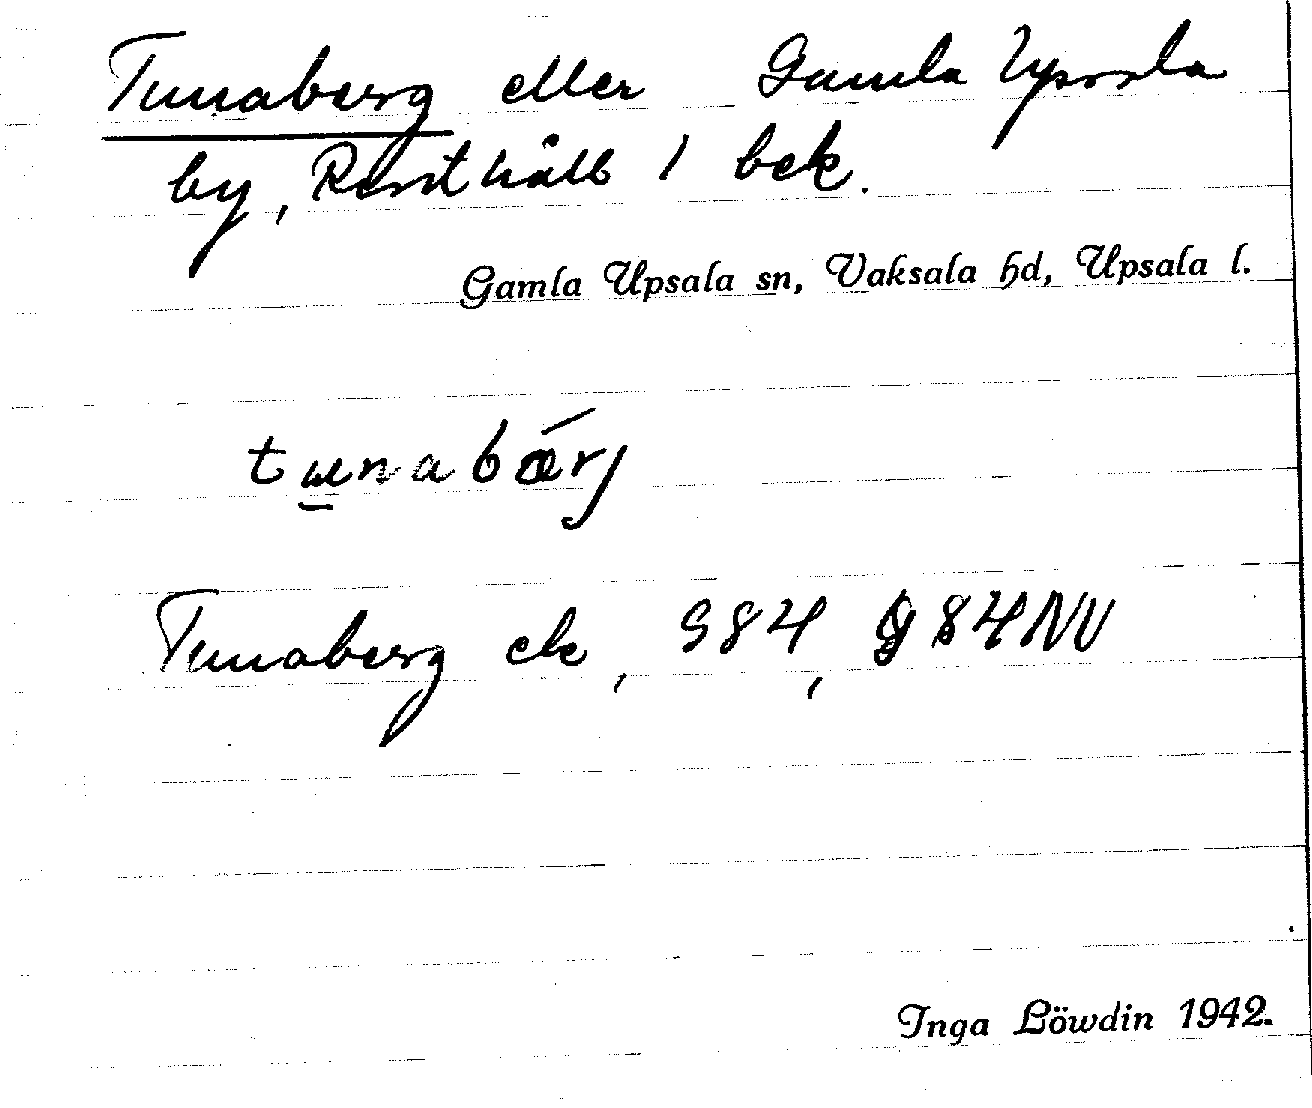 Tunaberg eller Gamla Upsala
by, Rusthåll 1 bek.
Gamla Upsala sn, Vaksala hd, Upsala l.
tunabǽrj
Tunaberg ek, G84, G84NV
Inga Löwdin 1942.